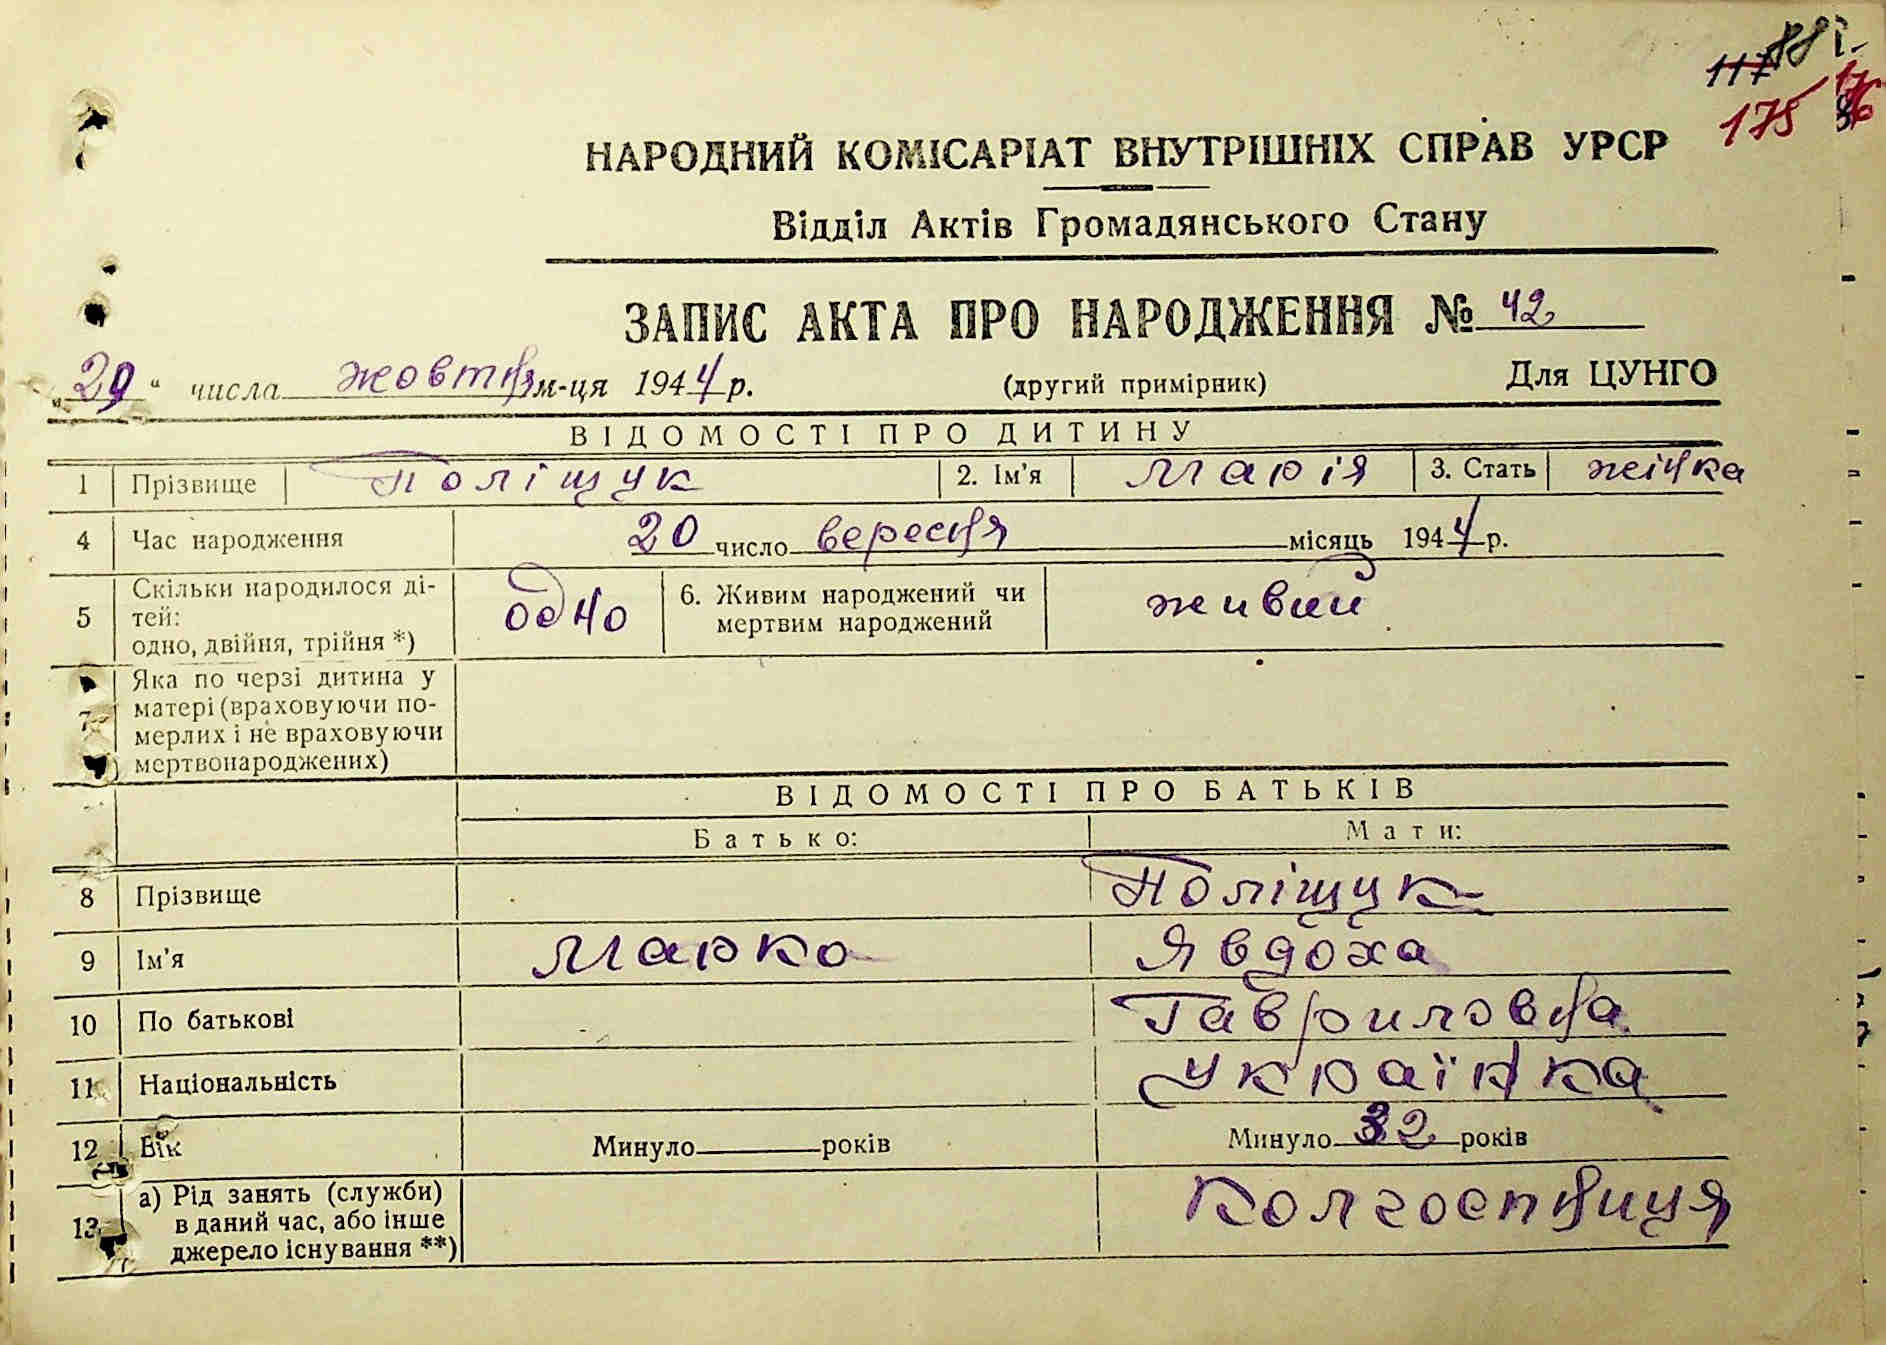 88
117
175
НАРОДНИЙ КОМІСАРІАТ ВНУТРІШНІХ СПРАВ УРСР
Відділ Актів Громадянського Стану
ЗАПИС АКТА ПРО НАРОДЖЕННЯ № 42
„29" числа жовтня м-ця 1944 р. (другий примірник) Для ЦУНГО
ВІДОМОСТІ ПРО ДИТИНУ
1 Прізвище Поліщук 2. Ім'я Марія 3. Стать жінка
4 Час народження 20 число вересня місяць 1944 р.
5 Скільки народилося ді-
тей:
одно, двійня, трійня *) одно 6. Живим народжений чи
мертвим народжений живий
7 Яка по черзі дитина у
матері (враховуючи по-
мерлих і не враховуючи
мертвонароджених)
ВІДОМОСТІ ПРО БАТЬКІВ
Батько: Мати:
8 Прізвище Поліщук
9 Ім'я Марко Явдоха
10 По батькові Гавриловна
11 Національність Українка
12 Вік Минуло років Минуло 32 років
13 а) Рід занять (служби)
в даний час, або інше
джерело існування **) Колгоспниця